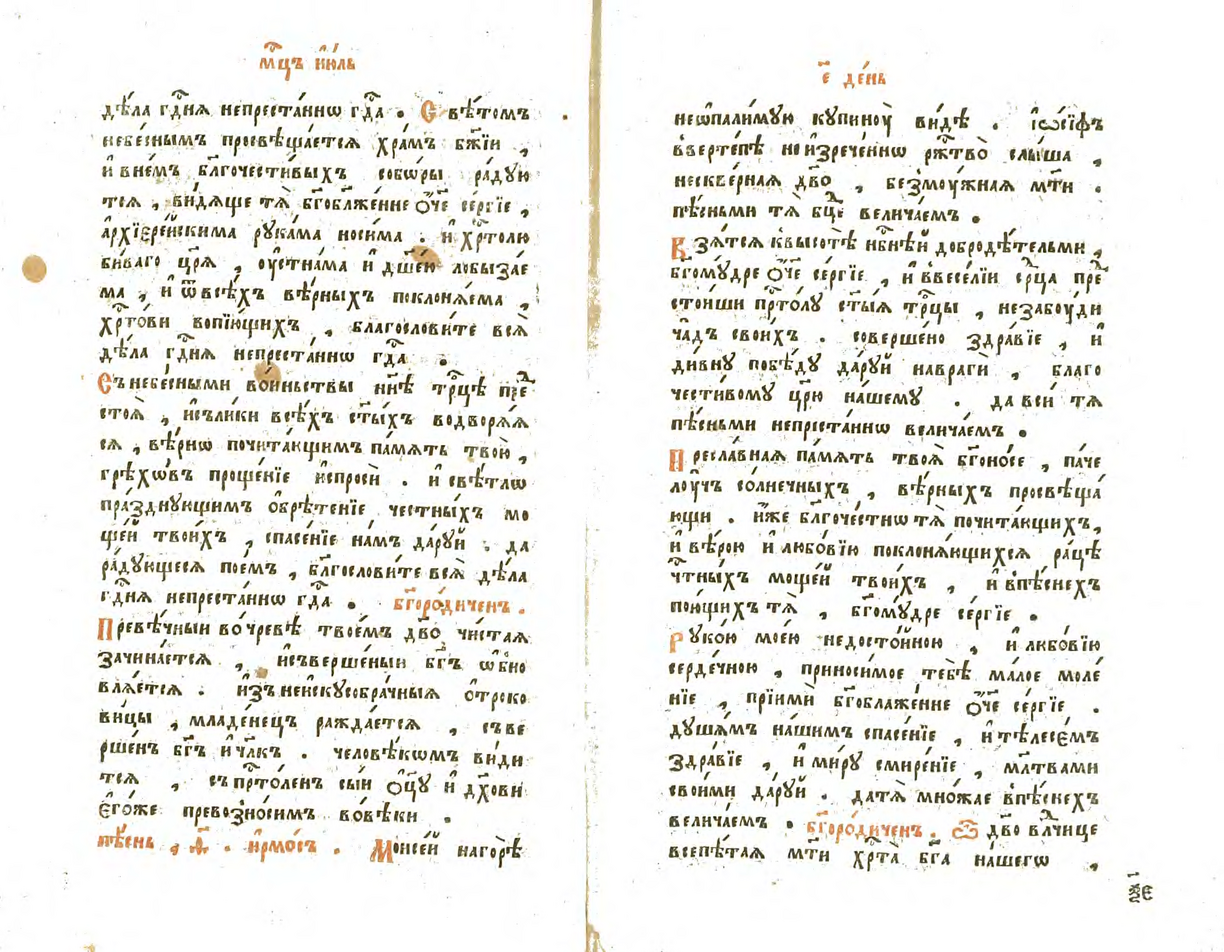 мⷭ҇цъ і҆ю́ль
дѣ́ла гдⷭ҇нѧ непреста́ннѡ гдⷭ҇а . Свѣ́томъ
небе́снымъ просвѣща́етсѧ хра́мъ бж҃їи ,
и҆ вне́мъ блг҃очести́выхъ собѡ́ры ра́дую
тсѧ , ви́дѧще тѧ̀ бг҃обл҃же́нне ѻ҆́ч҃е се́ргїе ,
а҆рхїере́йскима рука́ма носи́ма . и҆ хрⷭ҇толю
би́ваго цр҃ѧ̀ , оу҆стна́ма и҆ дш҃е́ю лобыза́е
ма , и҆ ѿ всѣ́хъ вѣ́рныхъ поклонѧ́ема ,
хрⷭ҇то́ви вопїю́щихъ , благослови́те всѧ̀
дѣ́ла гдⷭ҇нѧ непреста́ннѡ гдⷭ҇а .
Съ небе́сными во́иньствы нн҃ѣ трⷪ҇цѣ пре
стоѧ̀ , и҆ съ ли́ки всѣ́хъ ст҃ы́хъ водворѧ́ѧ
сѧ , вѣ́рнѡ почита́ющимъ па́мѧть твою̀ ,
грѣхѡ́въ проще́нїе и҆спросѝ . и҆ свѣ́тлѡ
пра́зднующимъ ѻ҆брѣ́тенїе че́стныхъ мо
ще́й твои́хъ , спасе́нїе на́мъ да́руй . да
ра́дующесѧ пое́мъ , блг҃ослови́те всѧ̀ дѣ́ла
гдⷭ҇нѧ непреста́ннѡ гдⷭ҇а . бг҃оро́диченъ .
Превѣ́чныи во чре́вѣ твое́мъ дв҃о чи́стаѧ
зачина́етсѧ , и҆ съверше́ныи бг҃ъ ѡ҆бно
влѧ́етсѧ . и҆з̾ неискусобра́чныѧ ѻ҆троко
ви́цы , младе́нецъ ражда́етсѧ , съве
рше́нъ бг҃ъ и҆ чл҃къ . человѣ́кѡмъ види
тсѧ , съ прⷭ҇то́ленъ сы́и ѻ҆ц҃у̀ и҆ дх҃ови
є҆го́же превозно́симъ во вѣ́ки .
пѣ́снь , ѳ҃ . і҆рмо́съ . Моисе́й на горѣ̀
є҃ де́нь
неѡпали́мую купинꙋ̀ ви́дѣ . і҆ѡ́сїфъ
в верте́пѣ неизрече́ннѡ ржⷭ҇тво̀ слы́ша ,
нескве́рнаѧ дв҃о , безмꙋ́жнаѧ мт҃и .
пѣ́сньми тѧ̀ бц҃е велича́емъ .
Взѧ́тсѧ к высотѣ̀ нбⷭ҇нѣй добродѣ́тельми ,
бг҃ому́дре ѻ҆́ч҃е се́ргїе , и҆ в весе́лїи се́рⷣца пре
стои́ши прⷭ҇то́лу ст҃ы́ѧ трⷪ҇цы , не забꙋ́ди
ча́дъ свои́хъ . соверше́но здра́вїе , и҆
ди́вну побѣ́ду да́руй на враги̑ , благо
чести́вому цр҃ю̀ на́шему . да вси́ тѧ
пѣ́сньми непреста́ннѡ велича́емъ .
Пресла́внаѧ па́мѧть твоѧ̀ бг҃оно́се , па́че
лꙋ́чъ со́лнечныхъ , вѣ́рныхъ просвѣща́
ющи . и҆̀же блг҃оче́стнѡ тѧ̀ почита́ющихъ ,
и҆ вѣ́рою и҆ любо́вїю поклонѧ́ющихсѧ ра́цѣ
чтⷭ҇ны́хъ моще́й твои́хъ , и҆ в пѣ́снехъ
пою́щихъ тѧ̀ , бг҃ому́дре се́ргїе .
Руко́ю мое́ю недосто́йною , и҆ любо́вїю
серде́чною , приноси́мое тебѣ̀ ма́лое моле́
нїе , прїимѝ бг҃обл҃же́нне ѻ҆́ч҃е се́ргїе .
душа́мъ на́шимъ спасе́нїе , и҆ тѣлесе́мъ
здра́вїе , и҆ ми́ру смире́нїе , мл҃твами
свои́ми да́руй . да тѧ̀ мно́жае в пѣ́снехъ
велича́емъ . бг҃оро́диченъ . Ѽ дв҃о влⷣчице
всепѣ́таѧ мт҃и хрⷭ҇та̀ бг҃а на́шегѡ ,